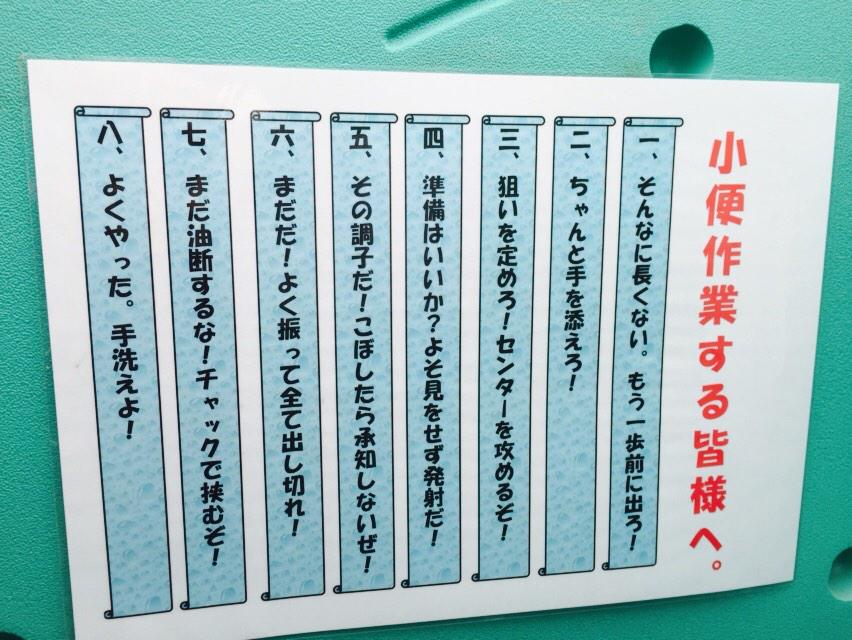 小便作業する皆様へ。
一、そんなに長くない。もう一歩前に出ろ！
二、ちゃんと手を添えろ！
三、狙いを定めろ！センターを攻めるぞ！
四、準備はいいか？よそ見をせず発射だ！
五、その調子だ！こぼしたら承知しないぜ！
六、まだだ！よく振って全て出し切れ！
七、まだ油断するな！チャックで挟むぞ！
八、よくやった。手洗えよ！